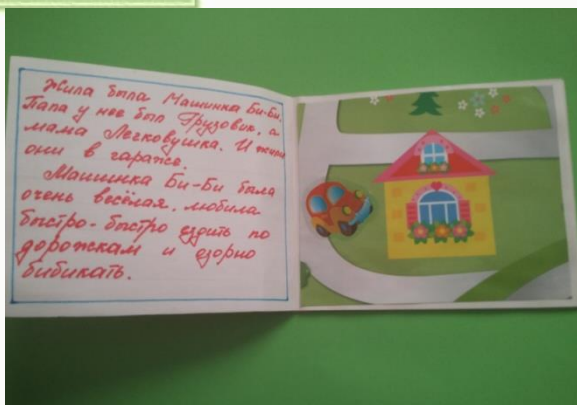 Жила была Машинка Би-Би.
Папа у нее был Грузовик, а
мама Легковушка. И жили
они в гараже.
Машинка Би-Би была
очень весёлая, любила
быстро-быстро ездить по
дорожкам и озорно
бибикать.